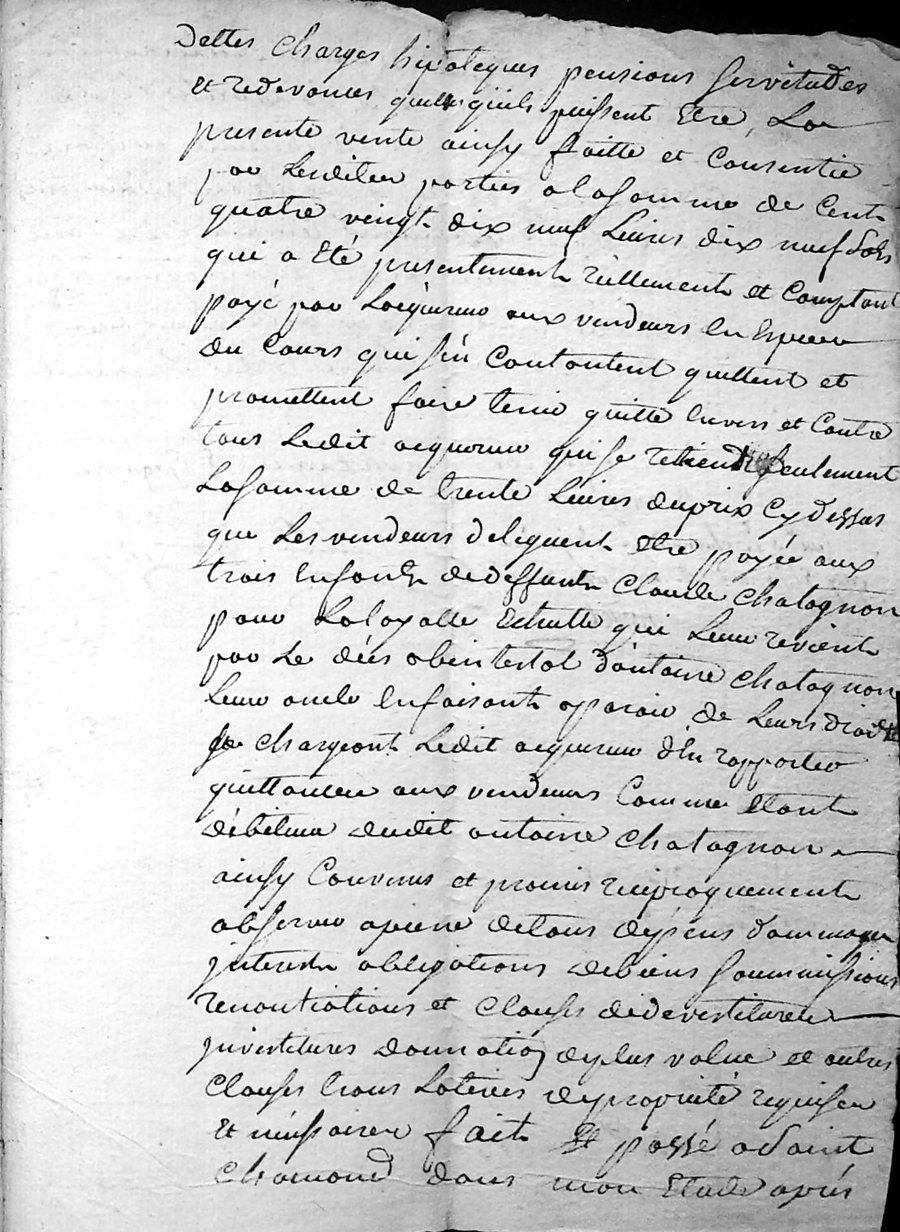 Dettes charges hipoteques pensions servitudes
et redevances quelles qu'ils puissent Etre, La
presente vente ainsy faitte et Consentie
par Lesdittes parties a la somme de Cent
quatre vingt dix neuf Livres dix neuf sols
qui a Eté presentement reellement et Comptant
payé par Lacquereur aux vendeurs En Especes
du Cours qui s'en Contentent quittent et
promettent faire tenir quitte Envers et Contre
tous Ledit acquereur qui se retiendra seulement
La somme de trente Livres du prix Cy dessus
que Les vendeurs deleguent Etre payée aux
trois Enfants de deffunt Claude Chatagnon
pour La layalle Echutte qui Leur revient
par Le déés abintestat d'antoine Chatagnon
Leur oncle En faisant aparoir de Leurs droits
se chargeant Ledit acquereur d'En rapporter
quittances aux vendeurs Comme Etant
débiteurs dudit antoine Chatagnon
ainsy Convenus et promis reciproquement
observer a peine de tous depens dommages
interests obligations de biens soummissions
renontiations et Clauses de devestitures
investitures donnation de plus value et autres
Clauses translatives de proprieté requises
et necessaires fait Et passé a Saint
Chamond dans mon Etude après